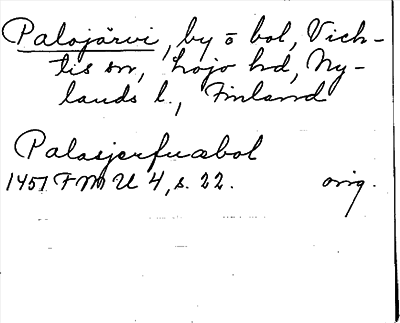 Palojärvi, by o bol, Vich-
tis sn, Lojo hd, Ny-
lands l., Finland
Palasjerfuabol
1451 FMU 4, s. 22. orig.